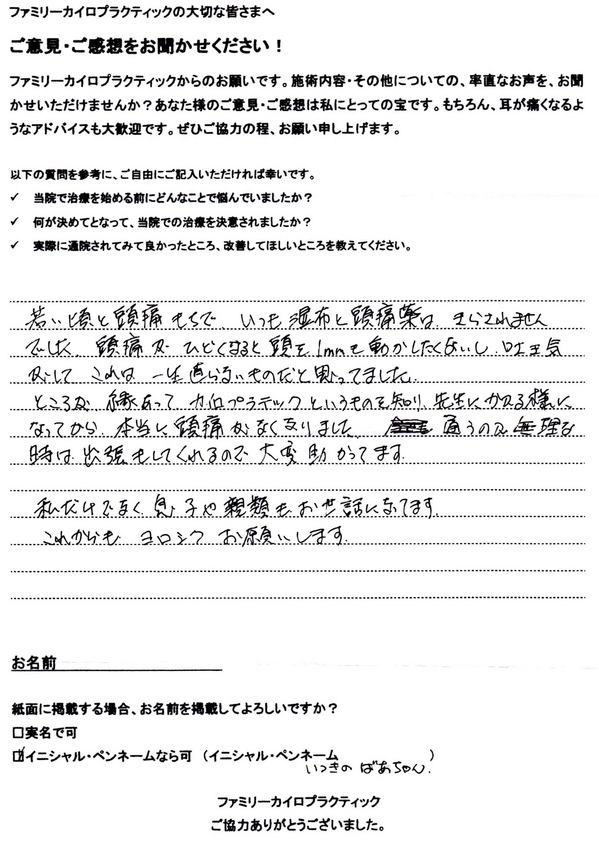 ファミリーカイロプラクティックの大切な皆さまへ
ご意見・ご感想をお聞かせください！
ファミリーカイロプラクティックからのお願いです。施術内容・その他についての、率直なお声を、お聞
かせいただけませんか？あなた様のご意見・ご感想は私にとっての宝です。もちろん、耳が痛くなるよ
うなアドバイスも大歓迎です。ぜひご協力の程、お願い申し上げます。
以下の質問を参考に、ご自由にご記入いただければ幸いです。
✓ 当院で治療を始める前にどんなことで悩んでいましたか？
✓ 何が決めてとなって、当院での治療を決意されましたか？
✓ 実際に通院されてみて良かったところ、改善してほしいところを教えてください。
若い頃と頭痛もちで いつも 湿布と頭痛薬は きらされません
でした 頭痛が ひどくなると頭を 1mmも動かしたくないし 吐き気
がして これは 一生直らないものだと思ってました
ところが 縁あって カイロプラテックというものを知り 先生にかかる様に
なってから 本当に頭痛がなくなりました 通うのが無理な
時は 出張もしてくれるので 大変 助かってます
私だけでなく 息子や親類も お世話になってます
これからも ヨロシク お願いします
お名前
紙面に掲載する場合、お名前を掲載してよろしいですか？
□実名で可
☑イニシャル・ペンネームなら可 （イニシャル・ペンネーム ）
いつきの ばあちゃん.
ファミリーカイロプラクティック
ご協力ありがとうございました。